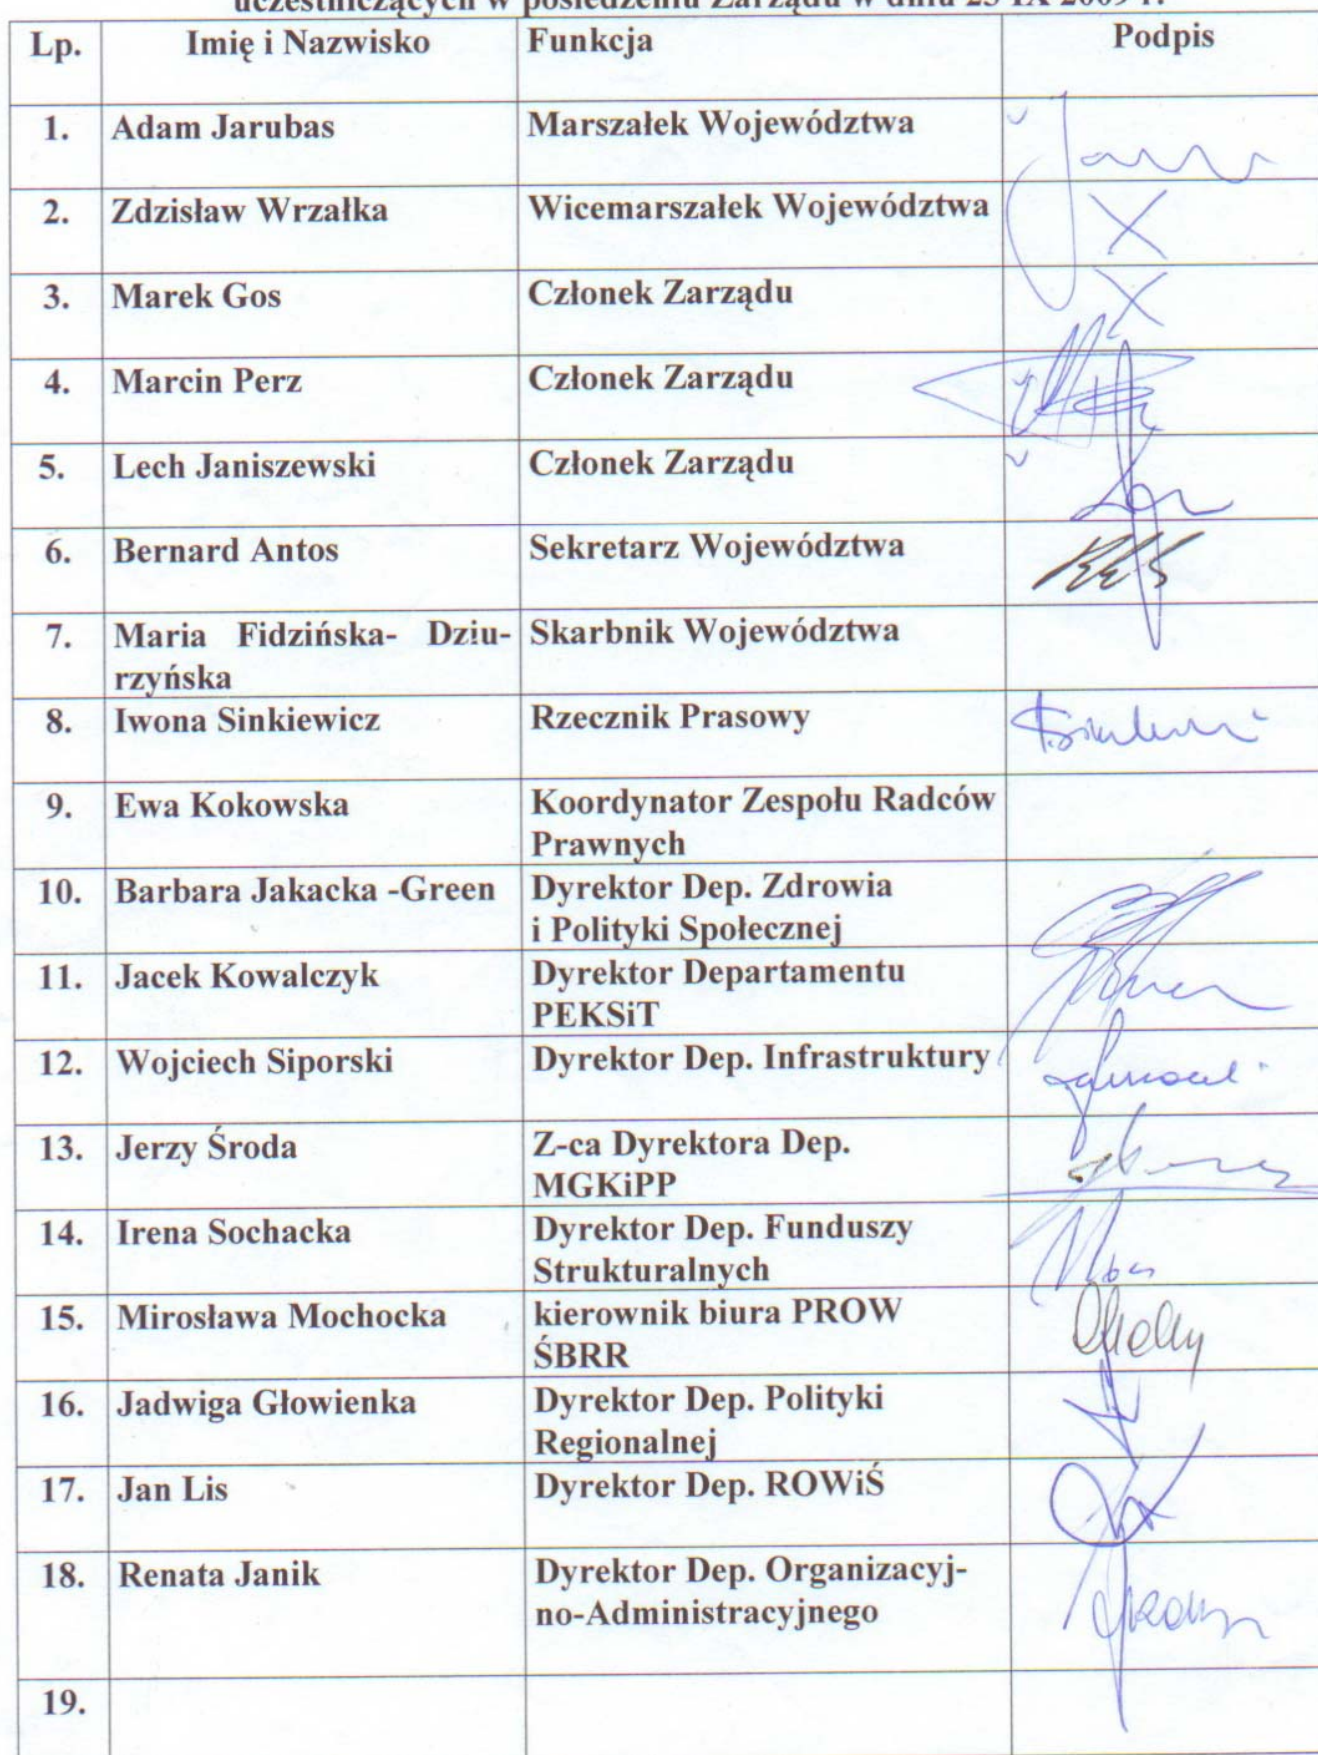 uczestniczących w posiedzeniu Zarządu w dniu 23 IX 2009 r.
Lp. Imię i Nazwisko Funkcja Podpis
1. Adam Jarubas Marszałek Województwa
2. Zdzisław Wrzałka Wicemarszałek Województwa X
3. Marek Gos Członek Zarządu X
4. Marcin Perz Członek Zarządu
5. Lech Janiszewski Członek Zarządu
6. Bernard Antos Sekretarz Województwa
7. Maria Fidzińska- Dziu- Skarbnik Województwa
rzyńska
8. Iwona Sinkiewicz Rzecznik Prasowy
9. Ewa Kokowska Koordynator Zespołu Radców
Prawnych
10. Barbara Jakacka -Green Dyrektor Dep. Zdrowia
i Polityki Społecznej
11. Jacek Kowalczyk Dyrektor Departamentu
PEKSiT
12. Wojciech Siporski Dyrektor Dep. Infrastruktury
13. Jerzy Środa Z-ca Dyrektora Dep.
MGKiPP
14. Irena Sochacka Dyrektor Dep. Funduszy
Strukturalnych
15. Mirosława Mochocka kierownik biura PROW
ŚBRR
16. Jadwiga Głowienka Dyrektor Dep. Polityki
Regionalnej
17. Jan Lis Dyrektor Dep. ROWiŚ
18. Renata Janik Dyrektor Dep. Organizacyj-
no-Administracyjnego
19.